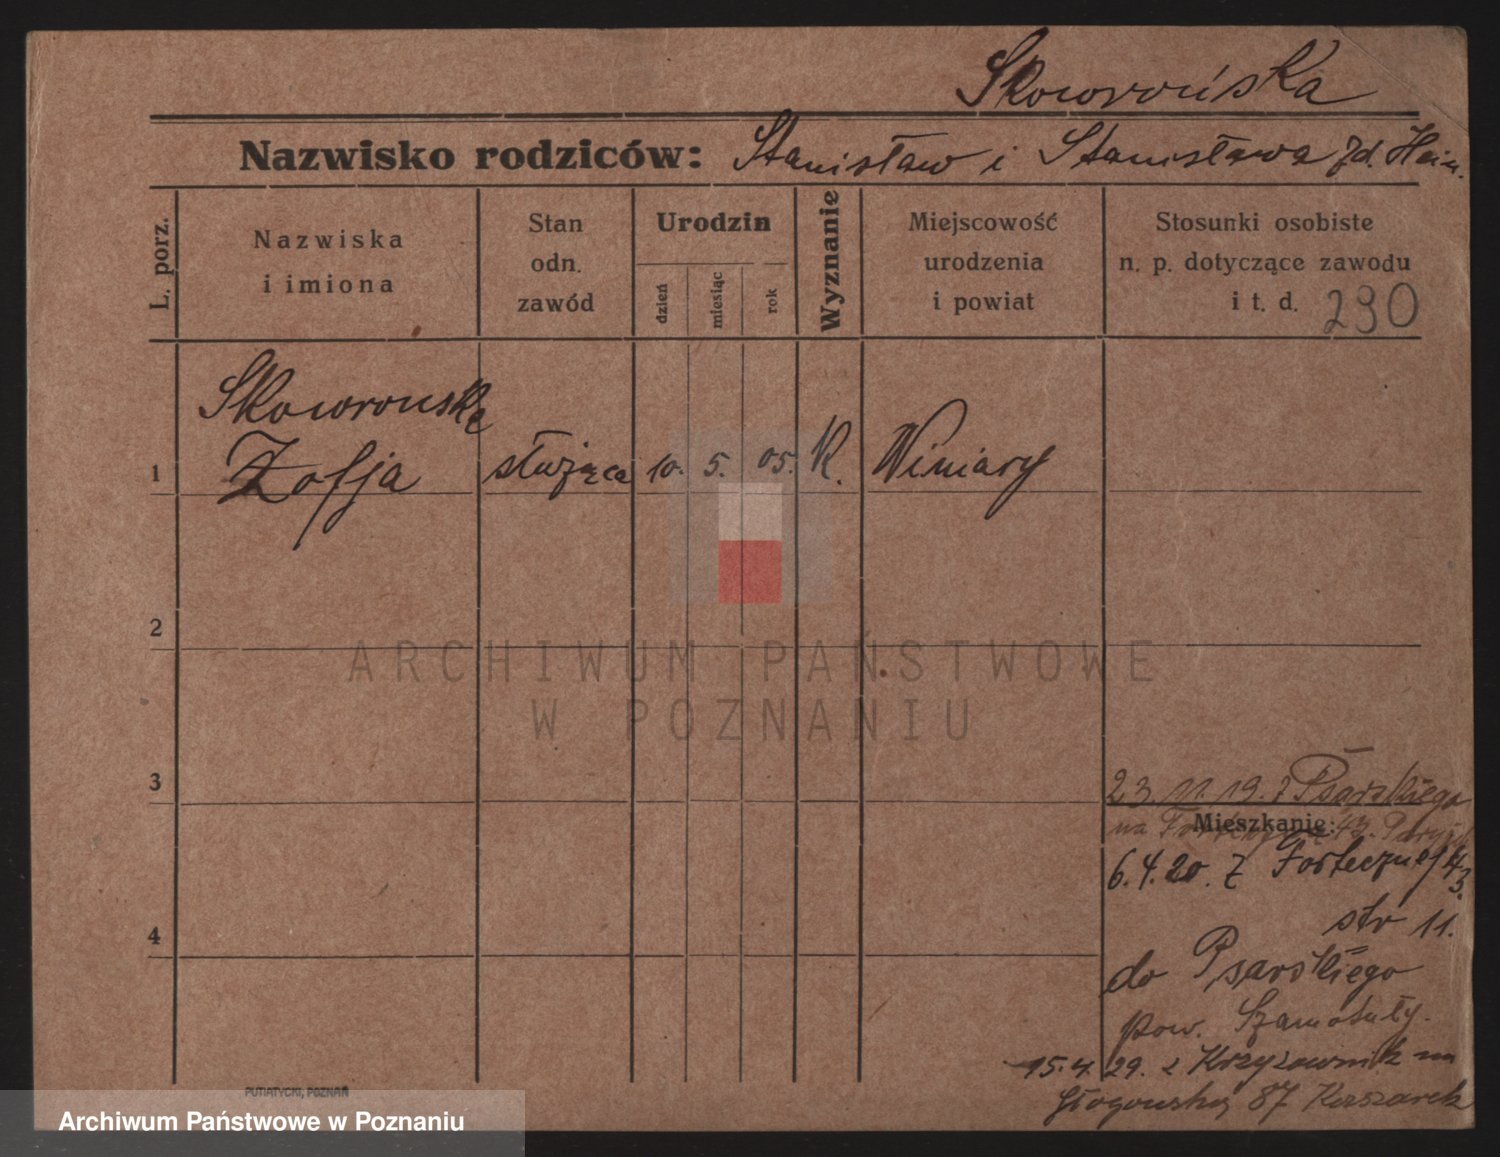 Skowrońska
Nazwisko rodziców: Stanisław i Stanisława
L. porz.
Nazwiska
i imiona
Stan
odn.
zawód
Urodzin
dzień
miesiąc
rok
Wyznanie
Miejscowość
urodzenia
i powiat
Stosunki osobiste
n. p. dotyczące zawodu
i t. d. 290
Skowrońska
1 Zofja służąca 10. 5. 05. K. Winiary
2
ARCHIWUM PAŃSTWOWE
W POZNANIU
3
23.11.19. z Psarskiego
Mieszkanie:
na 43.
6.4.20. z Fortecznej 43.
str 11.
4
do Psarskiego
pow. Szamotuły.
15.4.29. z Krzyżownik na
Głogowską 87
PUTIATYCKI, POZNAŃ
Archiwum Państwowe w Poznaniu